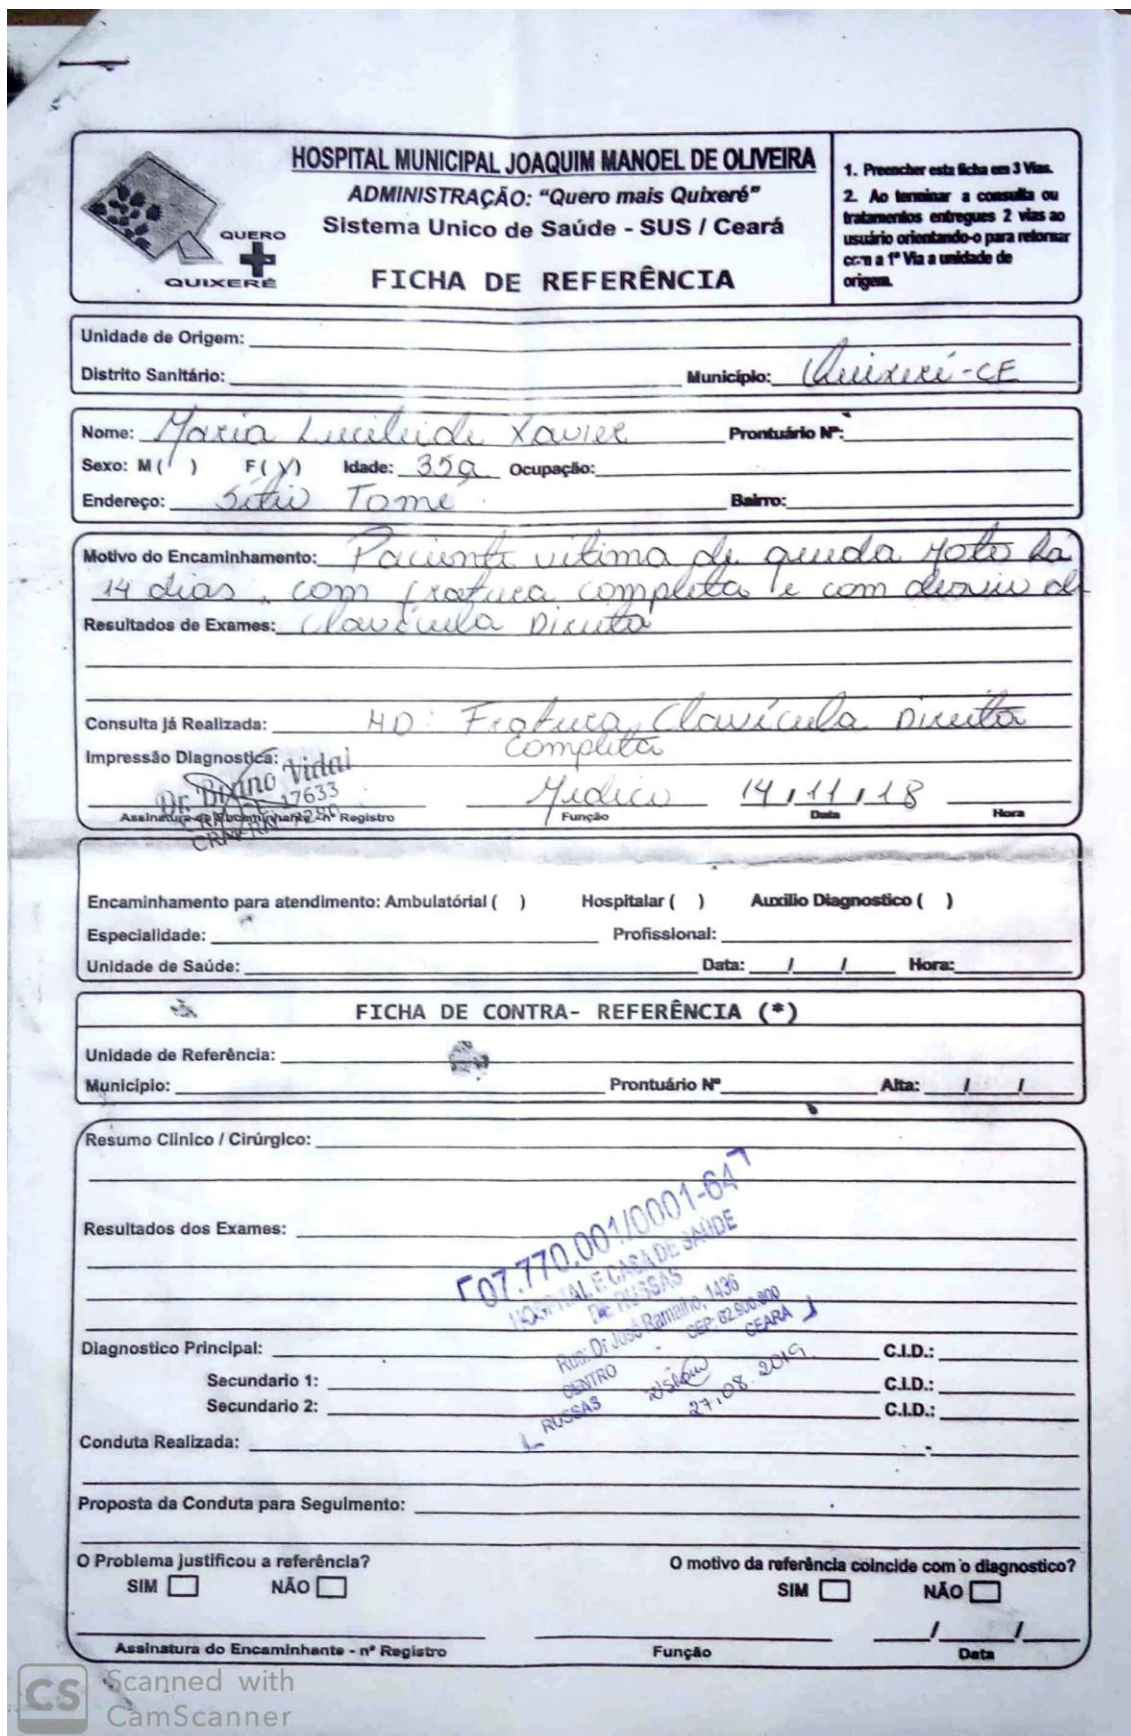 HOSPITAL MUNICIPAL JOAQUIM MANOEL DE OLIVEIRA
ADMINISTRAÇÃO: "Quero mais Quixeré"
Sistema Unico de Saúde - SUS / Ceará
FICHA DE REFERÊNCIA
QUERO
QUIXERÉ
1. Preencher esta ficha em 3 Vias.
2. Ao terminar a consulta ou
tratamentos entregues 2 vias ao
usuário orientando-o para retornar
com a 1ª Via a unidade de
origem.
Unidade de Origem:
Distrito Sanitário: Município: Quixeré-CE
Nome: Maria Lucileide Xavier Prontuário Nº:
Sexo: M ( ) F ( ) Idade: 35a Ocupação:
Endereço: Sítio Tomé Bairro:
Motivo do Encaminhamento: Paciente vitima de queda moto há
14 dias, com fratura completa e com desvio de
Resultados de Exames: Clavícula Direita
Consulta já Realizada: HD: Fratura Clavícula Direita
Completa
Impressão Diagnostica:
Dr. Bruno Vidal
17633
Médico 14/11/18
Assinatura do Encaminhante - nº Registro Função Data Hora
Encaminhamento para atendimento: Ambulatórial ( ) Hospitalar ( ) Auxilio Diagnostico ( )
Especialidade: Profissional:
Unidade de Saúde: Data: / / Hora:
FICHA DE CONTRA- REFERÊNCIA (*)
Unidade de Referência:
Município: Prontuário Nº Alta: / /
Resumo Clinico / Cirúrgico:
Resultados dos Exames:
07.770.001/0001-64
HOSPITAL E CASA DE SAÚDE
DE RUSSAS
Rua: Dr José Ramalho, 1436
CENTRO - CEP: 62.900.000
RUSSAS CEARÁ
27.08.2019
Diagnostico Principal: C.I.D.:
Secundario 1: C.I.D.:
Secundario 2: C.I.D.:
Conduta Realizada:
Proposta da Conduta para Seguimento:
O Problema justificou a referência? O motivo da referência coincide com o diagnostico?
SIM NÃO SIM NÃO
/ /
Assinatura do Encaminhante - nº Registro Função Data
CS Scanned with
CamScanner